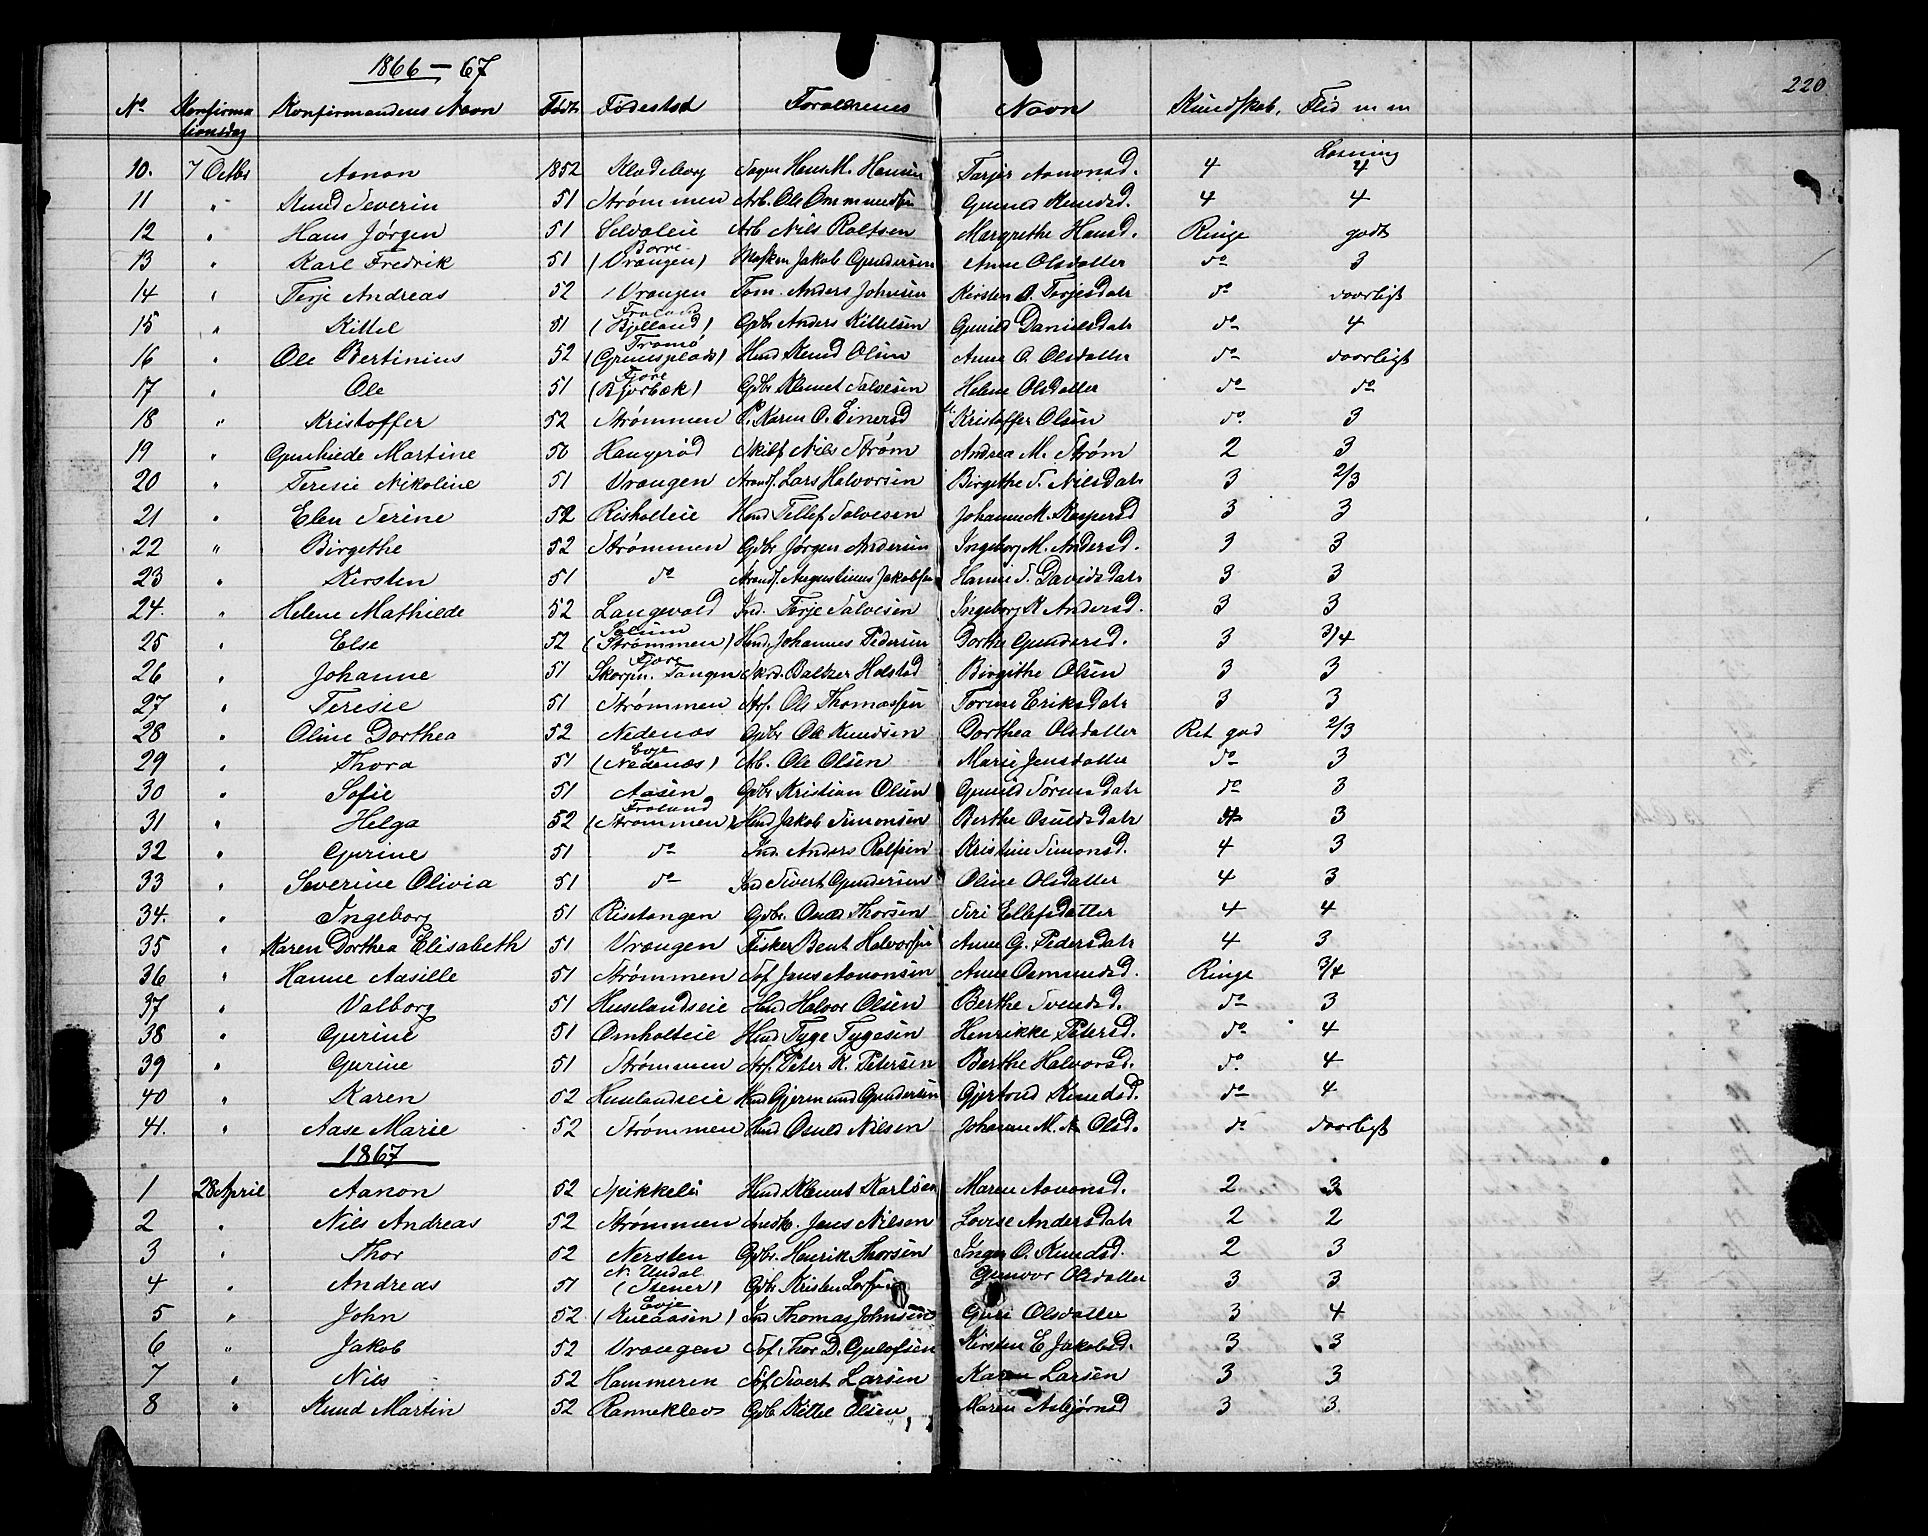 1866 - 67
220
No Konfirmationsdag Konfirmandens Navn Født Fødested Forældrenes Navn Kundskab. Flid m m
Læsning
10. 7 Octbr Aanon 1852 Hans M. Hansen Aanonsd. 4 4
11 " Knud Severin 51 Strømmen Arb. Ole Ommundsen Gunild Knudsd. 4 4
12 " Hans Jørgen 51 Arb Nils Margrethe Hansd. Ringe godt
13 " Karl Fredrik 51 Borre (Vrængen) Jakob Gundersen Anne Olsdatter do 3
14 " Terje Andreas 52 Vrængen Tøm. Anders Johnsen Kirsten A. Terjesdatr do daarligt
15 " Kittel 51 Froland (Bjelland) Gdbr Anders Kittelsen Gunild Danielsdatr do 4
16 " Ole Bertinius 52 Tromø Husd Knud Olsen Anne O. Olsdatter do daarligt
17 " Ole 51 Fjære (Bjorbæk) Gdbr Klemet Salvesen Helene Olsdatter do do
18 " Kristoffer 52 Strømmen P. Karen O. Einersd Kristoffer Olsen do 3
19 " Gunhilde Martine 50 Haugerød Nils Strøm Andrea M. Strøm 2 3
20 " Teresie Nikoline 51 Vrængen Strands. Lars Halvorsen Birgethe T. Nilsdatr 3 2/3
21 " Elen Serine 52 Risholteie Husd Tellef Salvesen Johanne M. Kaspersd 3 3
22 " Birgethe 52 Strømmen Gdbr Jørgen Andersen Ingeborg M. Andersd. 3 3
23 " Kirsten 51 do Strands. Augustinus Jakobsen Hanne T. Davidsdatr 3 3
24. " Helene Mathilde 52 Langevold Ind. Terje Salvesen Ingeborg K Andersd. 3 3
25 " Else 52 Solum (Strømmen) Husd. Johannes Pedersen Dorthe Gundersd. 3 3/4
26 " Johanne 51 Fjære Tangen Baltser Holstad Birgithe Olsen 3 3
27 " Teresie 51 Strømmen Ole Thomassen Torine Eriksdatr 3 3
28 " Oline Dorthea 52 Nedenæs Gdbr Ole Knudsen Dorthea Olsdatter Ret god 2/3
29 " Thora 51 Evje (Nedenæs) Arb. Ole Olsen Marie Jensdatter do 3
30 " Sofie 51 Aasen Gdbr Kristian Olsen Gunild Sørensdatr do 3
31 " Helga 52 Froland (Strømmen) Husd Jakob Simonsen Berthe Osuldsdatr 4 3
32 " Gurine 51 do Ind. Anders Rolfsen Kristine Simonsd. 4 3
33 " Severine Olivia 51 do Ind Sivert Gundersen Oline Olsdatter 4 3
34. " Ingeborg 51 Risetangen Gdbr. Thorsen Siri Ellefsdatter 4 4
35 " Karen Dorthea Elisabeth 51 Vrængen Fisker Bent Halvorsen Anne G. Pedersdatr 4 3
36 " Hanne Aasille 51 Strømmen Søf Jens Aanonsen Anne Osmundsd. Ringe 3/4
37 " Valborg 51 Huslandseie Husd Halvor Olsen Berthe Svendsd. do 3
38 " Gurine 51 Omholteie Husd Tyge Tygesen Henrikke Petersd. do 4
39 " Gurine 51 Strømmen Peter K. Petersen Berthe Halvorsd. do 4
40 " Karen 52 Huslandseie Husd Gjermund Gundersen Gjertrud Knudsd. do 4
41. " Aase Marie 52 Strømmen Husd Osuld Nilsen Johanne M. N Olsd. do daarligt
1867
1 28 April Aanon 52 Spikkeli Husd Klemet Karlsen Maren Aanonsd. 2 3
2 " Nils Andreas 52 Strømmen Jens Nilsen Lovise Andersdatr 2 2
3 " Thor 52 Nersten Gdbr. Henrik Thorsen Inger O. Knudsd. 2 3
4 " Andreas 51 N. Undal Gdbr Kristen Gunvor Olsdatter 3 3
5 " John 52 Evje Ind Thomas Johnsen Guri Olsdatter 3 4
6 " Jakob 52 Vrængen Søf. Thor D. Gulofsen Kirsten E Jakobsd. 3 3
7 " Nils 52 Hammeren Søf Sivert Larsen Karen Larsen 3 3
8 " Knud Martin 52 Rannekleiv Gdb Kittel Olsen, Maren Asbjørnsd 3 3